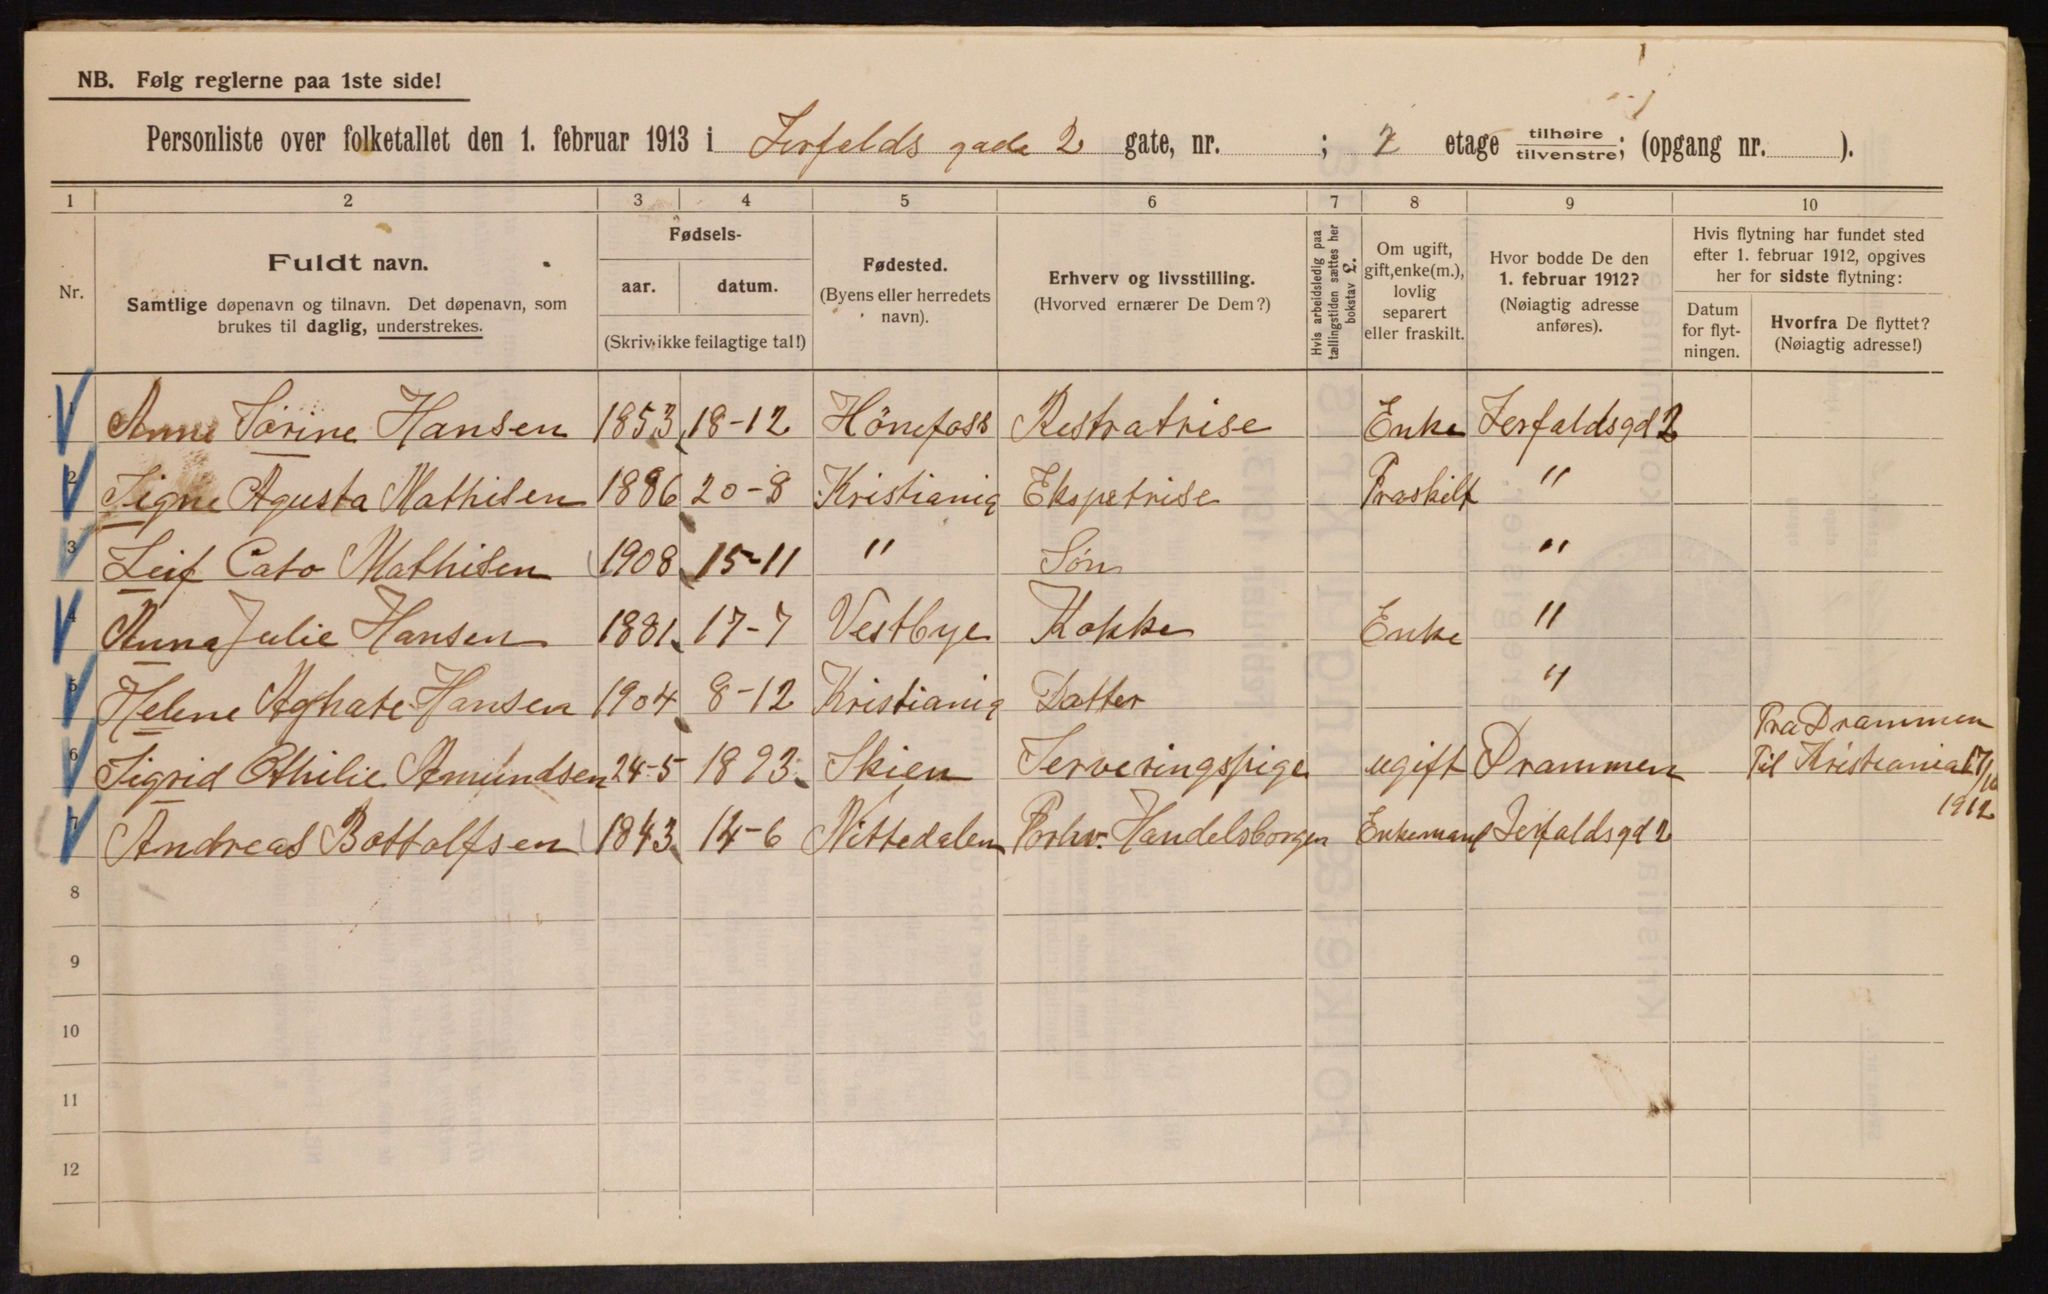 NB. Følg reglerne paa 1ste side!
Personliste over folketallet den 1. februar 1913 i Jerfalds gade 2 gate, nr. ; 2 etage tilhøire/tilvenstre; (opgang nr. ).
1 2 3 4 5 6 7 8 9 10
Nr.
Fuldt navn.
Samtlige døpenavn og tilnavn. Det døpenavn, som
brukes til daglig, understrekes.
Fødsels-
aar. datum.
(Skriv ikke feilagtige tal!)
Fødested.
(Byens eller herredets
navn).
Erhverv og livsstilling.
(Hvorved ernærer De Dem?)
Hvis arbeidsledig paa
tællingstiden sættes her
bokstav L.
Om ugift,
gift, enke(m.),
lovlig
separert
eller fraskilt.
Hvor bodde De den
1. februar 1912?
(Nøiagtig adresse
anføres).
Hvis flytning har fundet sted
efter 1. februar 1912, opgives
her for sidste flytning:
Datum
for flyt-
ningen.
Hvorfra De flyttet?
(Nøiagtig adresse!)
1 Anne Sørine Hansen 1853 18-12 Hönefoss Restratrise Enke Jerfaldsgd 2
2 Signe Agusta Mathisen 1886 20-8 Kristiania Ekspetrise Fraskilt "
3 Leif Cato Mathisen 1908 15-11 " Søn "
4 Anna Julie Hansen 1881 17-7 Vestbye Kokke Enke "
5 Helene Aghate Hansen 1904 8-12 Kristiania Datter "
6 Sigrid Othilie Amundsen 24-5 1893 Skien Serveringspige ugift Drammen Fra Drammen
Til Kristiania 17/10
1912
7 Andreas Bottolfsen 1843 14-6 Nittedalen Forhv. Handelsborger Enkemand Jerfaldsgd 2
8
9
10
11
12